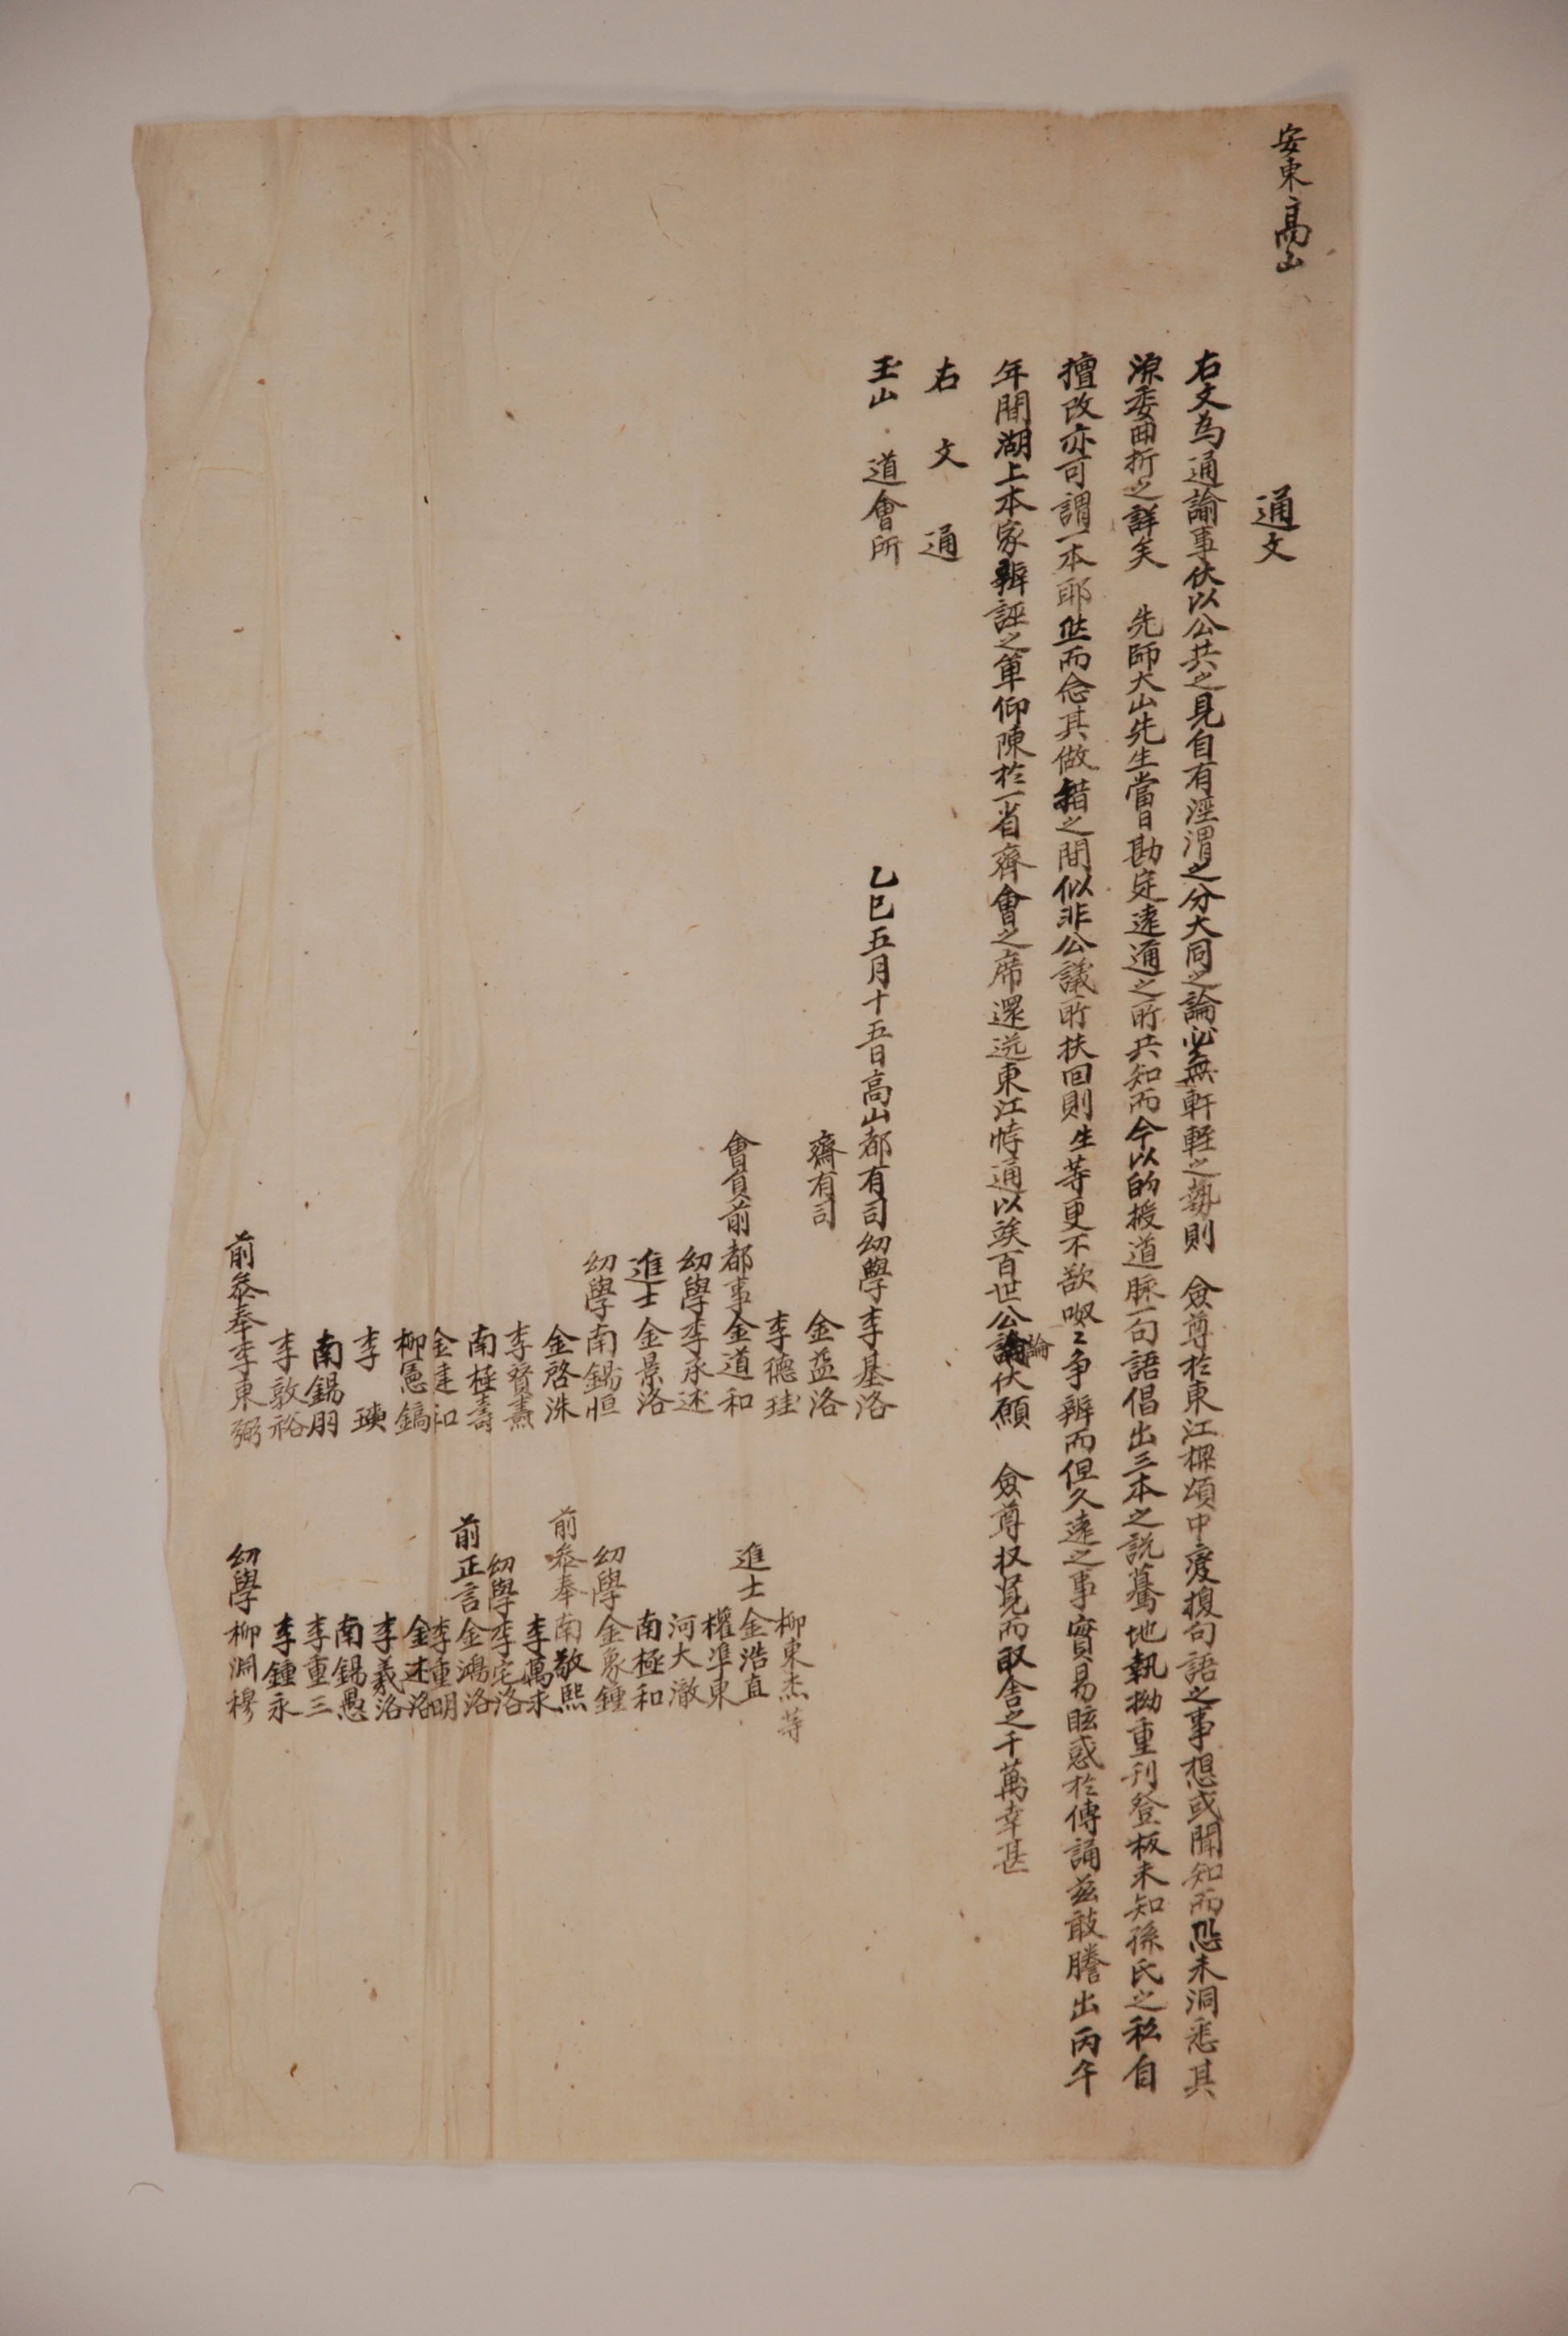 安東高山
通文
右文為通諭事伏以公共之見自有涇渭之分大同之論必無軒輊之勢則 僉尊於東江樑頌中變換句語之事想或聞知而恐未洞悉其
源委曲折之詳矣 先師大山先生當日勘定遠邇之所共知而今以的授道脉一句語倡出三本之說驀地執拗重刊登板未知孫氏之私自
擅改亦可謂一本耶然而念其做錯之間似非公議所扶回則生等更不欲呶〻爭辨而但久遠之事實易眩惑於傳誦玆敢謄出丙午
年間湖上本家辨誣之單仰陳於一省齊會之席還送東江悖通以竢百世公論伏願 僉尊收覽而取舍之千萬幸甚
右文通
玉山 道會所
乙巳五月十五日高山都有司幼學李基洛
齋有司 金益洛
李德珪
會員前都事金道和
幼學李承述
進士金景洛
幼學南錫恒
金啓洙
李賢燾
南極壽
金建和
柳憲鎬
李瑛
南錫朋
李敦裕
前參奉李東弼
柳東杰等
進士金浩直
權準東
河大澈
南極和
幼學金象鍾
前參奉南敬熙
李萬求
幼學李宅洛
前正言金鴻洛
李重明
金述洛
李羲洛
南錫愚
李重三
李鍾永
幼學柳淵穆